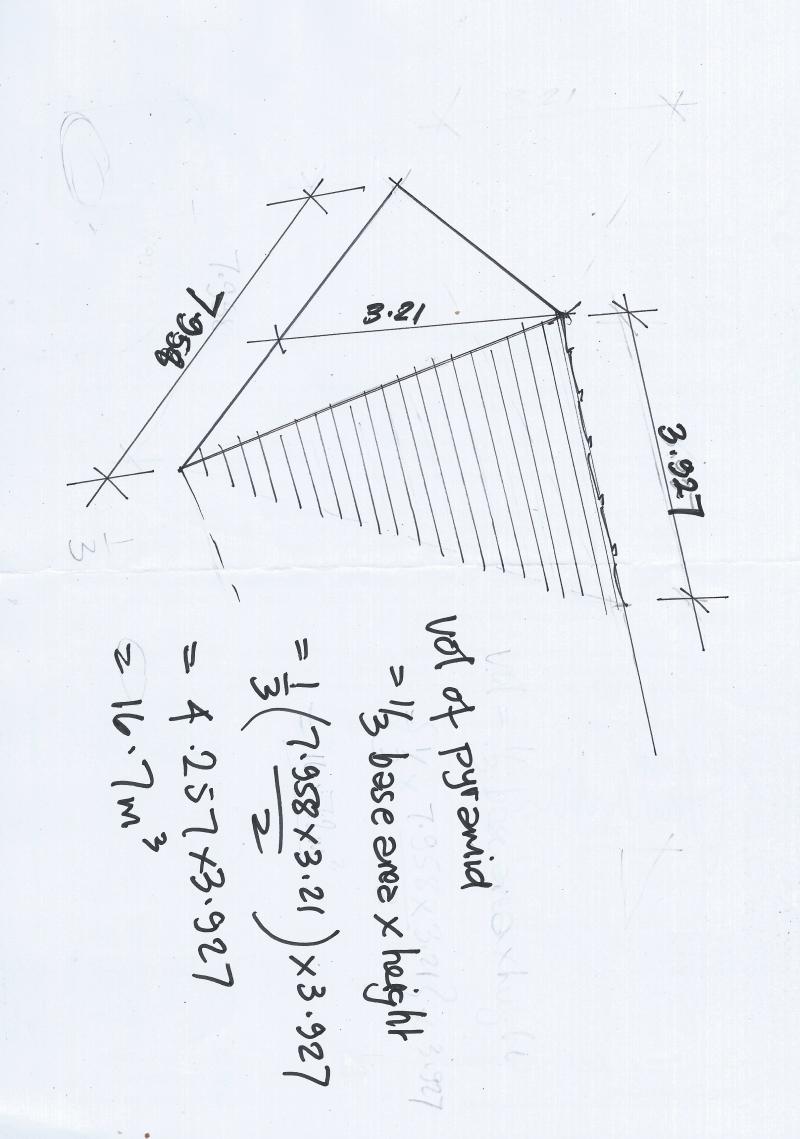 7.958
3.21
3.927
Vol of pyramid
= 1/3 base area x height
= 1/3 (7.958 x 3.21 / 2) x 3.927
= 4.257 x 3.927
= 16.7m³
1/3